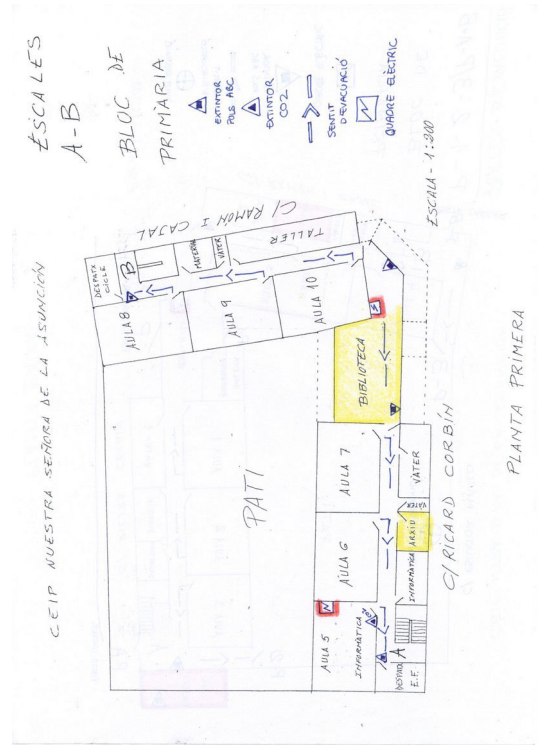 CEIP NUESTRA SEÑORA DE LA ASUNCIÓN
ESCALES
A-B
BLOC DE
PRIMÀRIA
EXTINTOR
POLS ABC
EXTINTOR
CO2
SENTIT
D'EVACUACIÓ
QUADRE ELÈCTRIC
ESCALA - 1:200
C/ RAMÓN I CAJAL
DESPATX
CICLE
B
MATERIAL
VATER
TALLER
AULA 8
AULA 9
AULA 10
BIBLIOTECA
PATI
AULA 7
AULA 6
AULA 5
INFORMÀTICA
VÀTER
VATER
ARXIU
INFORMÀTICA
A
DESPATX
E.F.
C/ RICARD CORBÍN
PLANTA PRIMERA